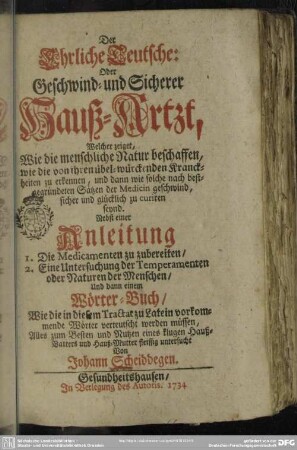 Der
Ehrliche Teutsche:
Oder
Geschwind- und Sicherer
Hauß-Artzt,
Welcher zeiget,
Wie die menschliche Natur beschaffen,
wie die von ihren übel-würckenden Kranck-
heiten zu erkennen, und dann wie solche nach best-
gegründeten Sätzen der Medicin geschwind,
sicher und glücklich zu curiren
seynd.
Nebst einer
Anleitung
1. Die Medicamenten zu zubereiten/
2. Eine Untersuchung der Temperamenten
oder Naturen der Menschen/
Und dann einem
Wörter-Buch/
Wie die in diesem Tractat zu Latein vorkom-
mende Wörter verteutscht werden müssen,
Alles zum Besten und Nutzen eines klugen Hauß-
Vatters und Hauß-Mutter fleißig untersucht
Von
Johann Scheidbegen.
Gesundheitshausen/
In Verlegung des Autoris. 1734